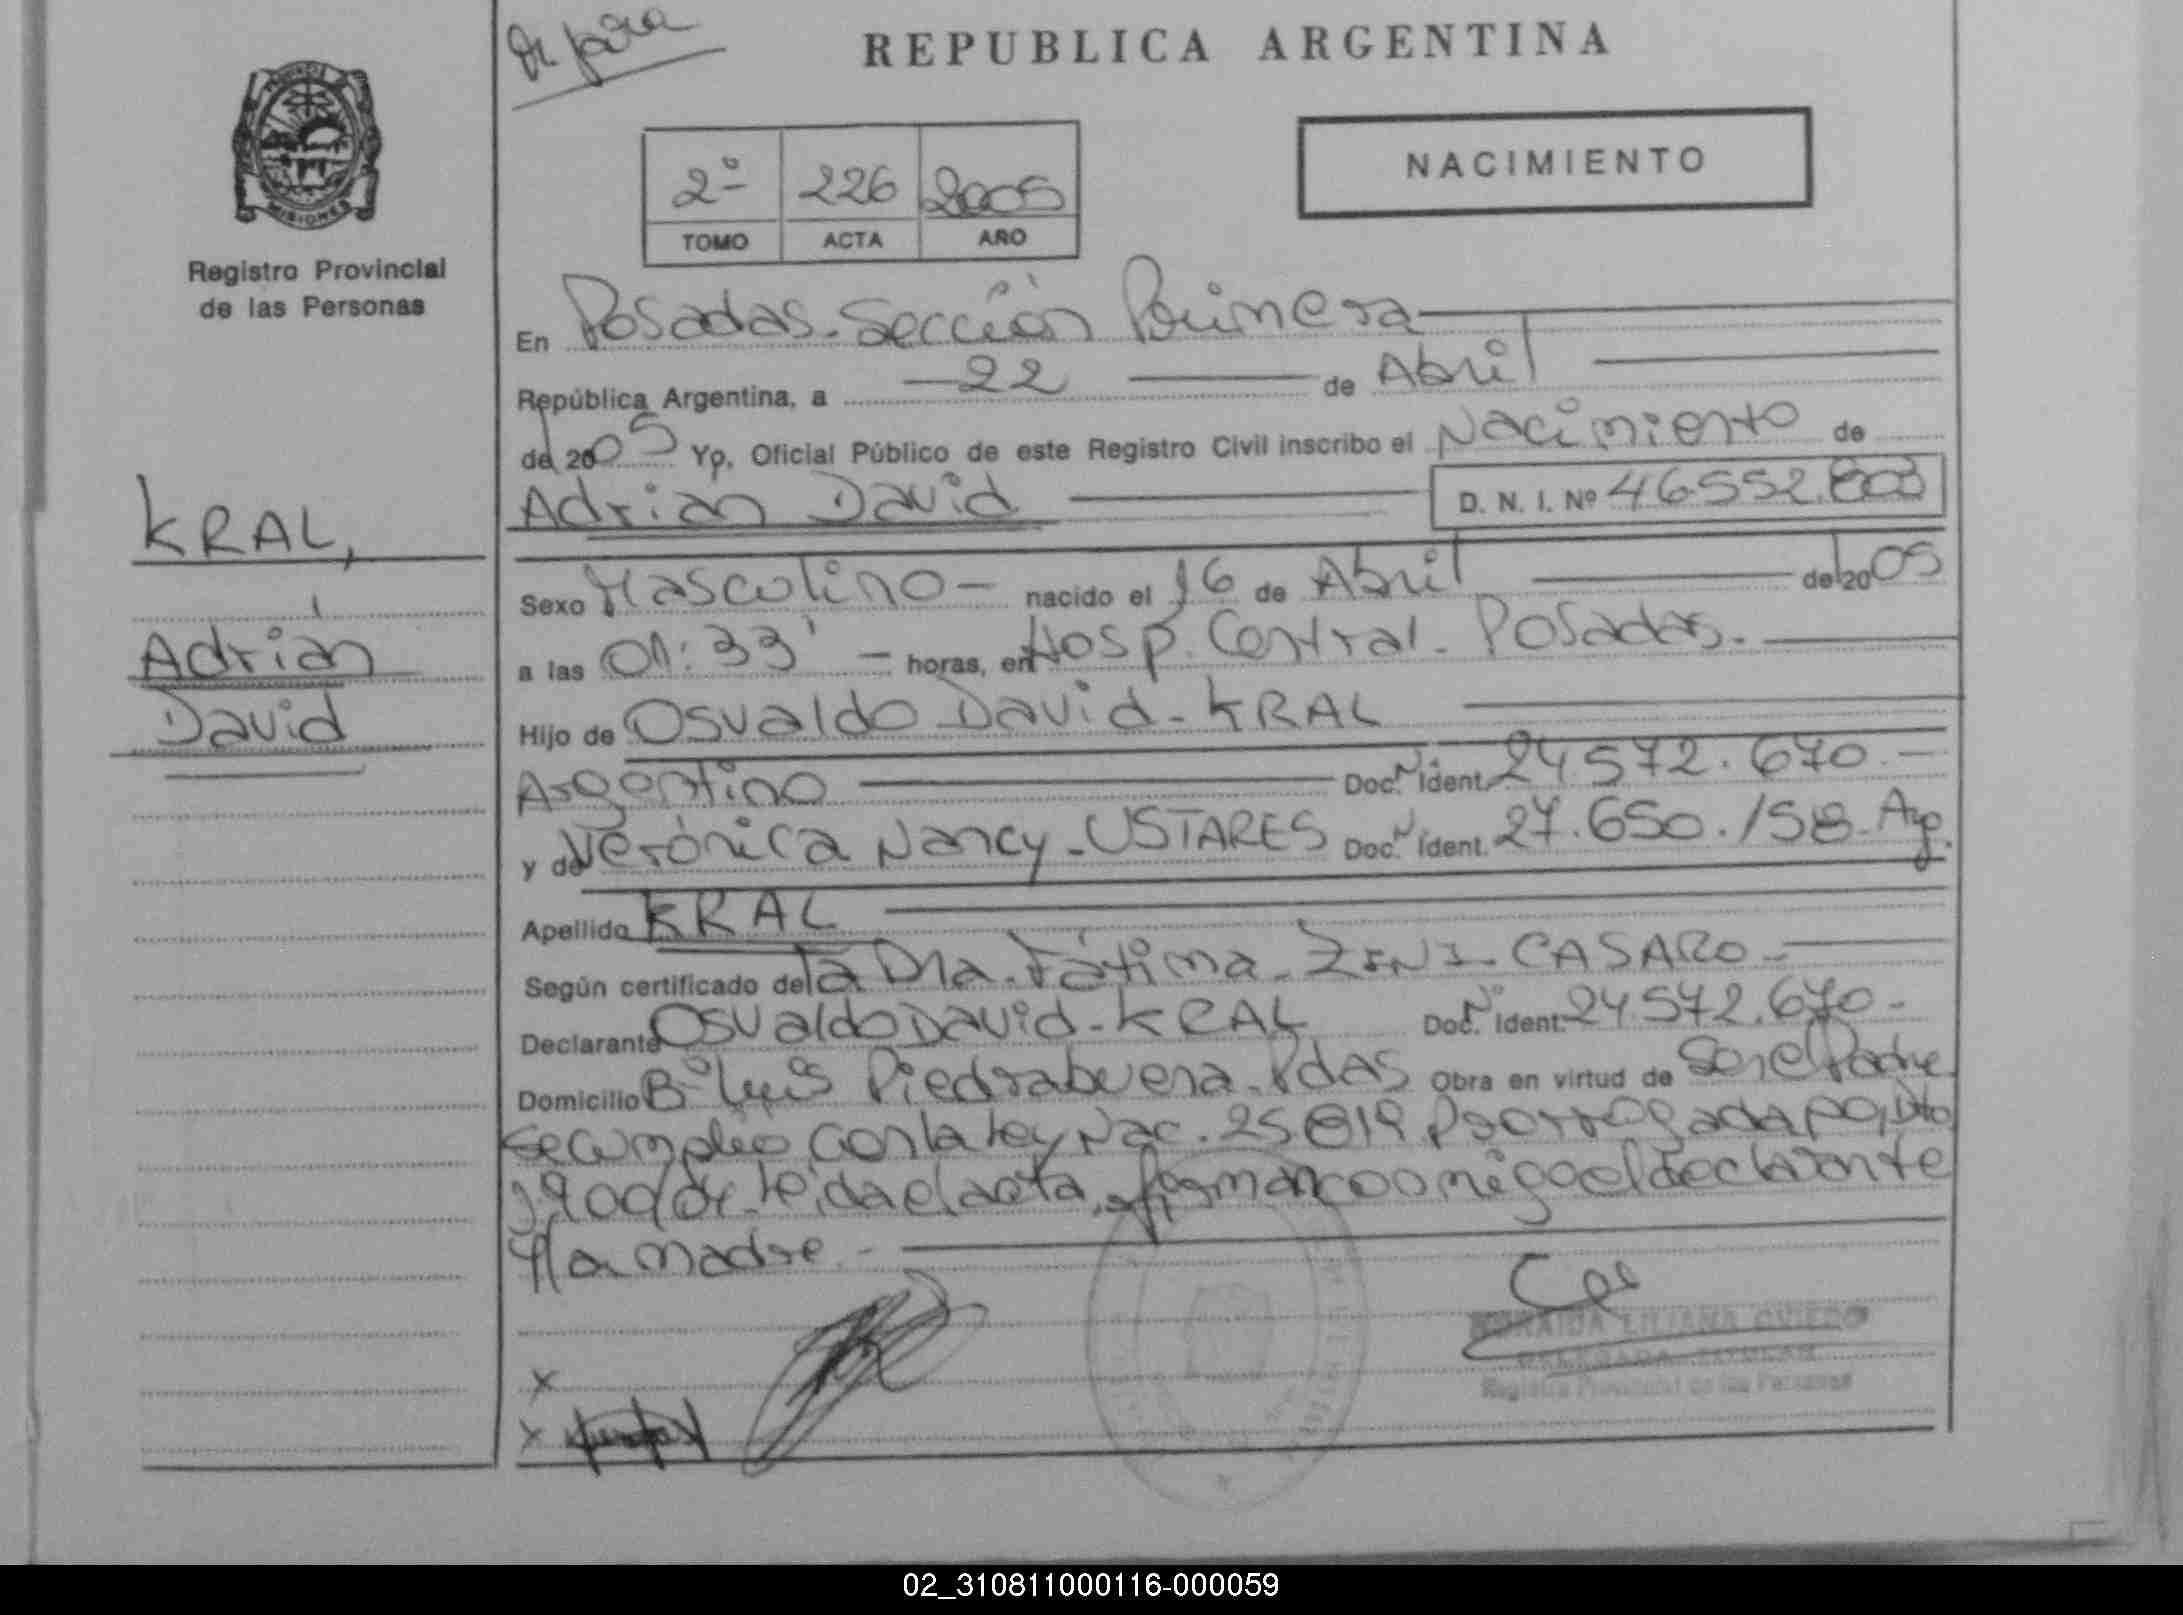 REPUBLICA ARGENTINA
NACIMIENTO
2º 226 2005
TOMO ACTA AÑO
MISIONES
Registro Provincial
de las Personas
En Posadas - Sección Primera
República Argentina, a 22 de Abril
de 2005 Yo, Oficial Público de este Registro Civil inscribo el Nacimiento de
Adrián David D. N. I. Nº 46.552.803
KRAL,
Adrián
David
Sexo Masculino - nacido el 16 de Abril de 2005
a las 01:33' - horas, en Hosp. Central - Posadas.
Hijo de Osvaldo David - KRAL
Argentino Doc. Nº Ident. 24.572.670. -
y de Verónica Nancy - USTARES Doc. Nº Ident. 27.650.158 - Arg.
Apellido KRAL
Según certificado de la Dra. Fátima - ZINI - CASARO -
Declarante Osvaldo David - KRAL Doc. Nº Ident. 24.572.670 -
Domicilio Bº Luis Piedrabuena - Pdas Obra en virtud de Ser el Padre
se cumplió con la Ley Nac. 25819 Prorrogada por Dto
1900/04 - Leída el acta, firman conmigo el declarante
y la madre. -
LILIANA OVIEDO
DELEGADA TITULAR
Registro Provincial de las Personas
x
x
02_310811000116-000059